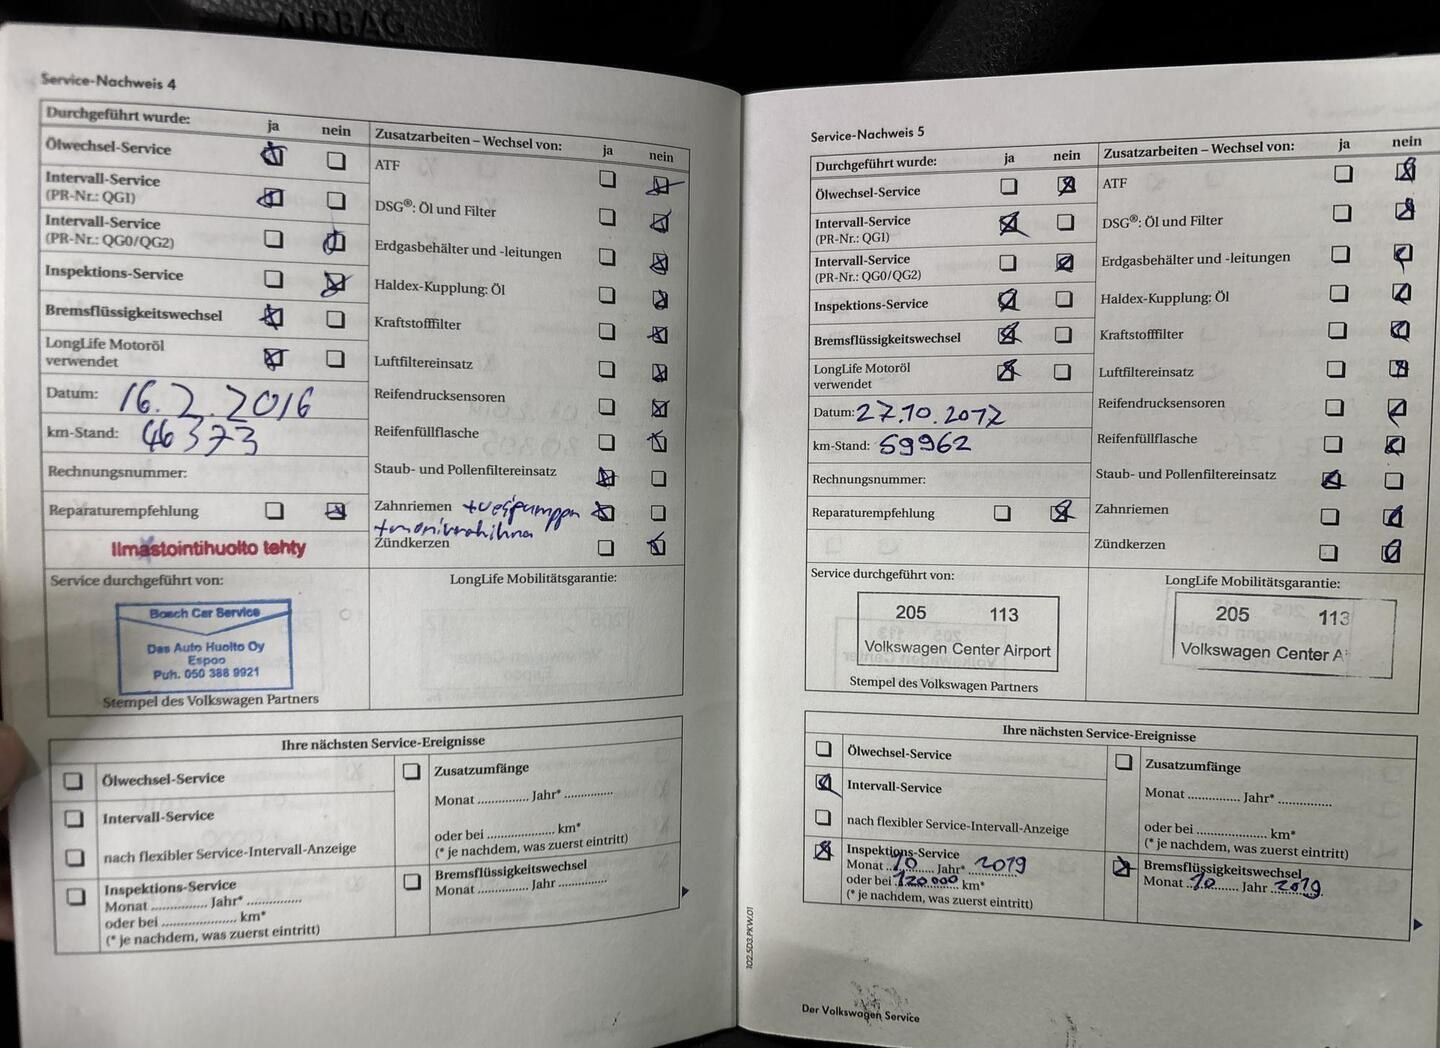 AIRBAG
Service-Nachweis 4
Durchgeführt wurde: ja nein
Ölwechsel-Service
Intervall-Service
(PR-Nr.: QG1)
Intervall-Service
(PR-Nr.: QG0/QG2)
Inspektions-Service
Bremsflüssigkeitswechsel
LongLife Motoröl
verwendet
Datum: 16.2.2016
km-Stand: 46373
Rechnungsnummer:
Reparaturempfehlung
Ilmastointihuolto tehty
Zusatzarbeiten – Wechsel von: ja nein
ATF
DSG®: Öl und Filter
Erdgasbehälter und -leitungen
Haldex-Kupplung: Öl
Kraftstofffilter
Luftfiltereinsatz
Reifendrucksensoren
Reifenfüllflasche
Staub- und Pollenfiltereinsatz
Zahnriemen +vesipumppu
+moniurahihna
Zündkerzen
Service durchgeführt von:
Bosch Car Service
Das Auto Huolto Oy
Espoo
Puh. 050 388 9921
Stempel des Volkswagen Partners
LongLife Mobilitätsgarantie:
Ihre nächsten Service-Ereignisse
Ölwechsel-Service
Intervall-Service
nach flexibler Service-Intervall-Anzeige
Inspektions-Service
Monat ............... Jahr* ...............
oder bei .................... km*
(* je nachdem, was zuerst eintritt)
Zusatzumfänge
Monat .............. Jahr* .............
oder bei .................... km*
(* je nachdem, was zuerst eintritt)
Bremsflüssigkeitswechsel
Monat .............. Jahr .............
Service-Nachweis 5
Durchgeführt wurde: ja nein
Ölwechsel-Service
Intervall-Service
(PR-Nr.: QG1)
Intervall-Service
(PR-Nr.: QG0/QG2)
Inspektions-Service
Bremsflüssigkeitswechsel
LongLife Motoröl
verwendet
Datum: 27.10.2017
km-Stand: 59962
Rechnungsnummer:
Reparaturempfehlung
Zusatzarbeiten – Wechsel von: ja nein
ATF
DSG®: Öl und Filter
Erdgasbehälter und -leitungen
Haldex-Kupplung: Öl
Kraftstofffilter
Luftfiltereinsatz
Reifendrucksensoren
Reifenfüllflasche
Staub- und Pollenfiltereinsatz
Zahnriemen
Zündkerzen
Service durchgeführt von:
205 113
Volkswagen Center Airport
Stempel des Volkswagen Partners
LongLife Mobilitätsgarantie:
205 113
Volkswagen Center A
Ihre nächsten Service-Ereignisse
Ölwechsel-Service
Intervall-Service
nach flexibler Service-Intervall-Anzeige
Inspektions-Service
Monat 10 Jahr* 2019
oder bei 120000 km*
(* je nachdem, was zuerst eintritt)
Zusatzumfänge
Monat .............. Jahr* ..............
oder bei .................... km*
(* je nachdem, was zuerst eintritt)
Bremsflüssigkeitswechsel
Monat 10 Jahr 2019
102.5D3.PKW.01
Der Volkswagen Service